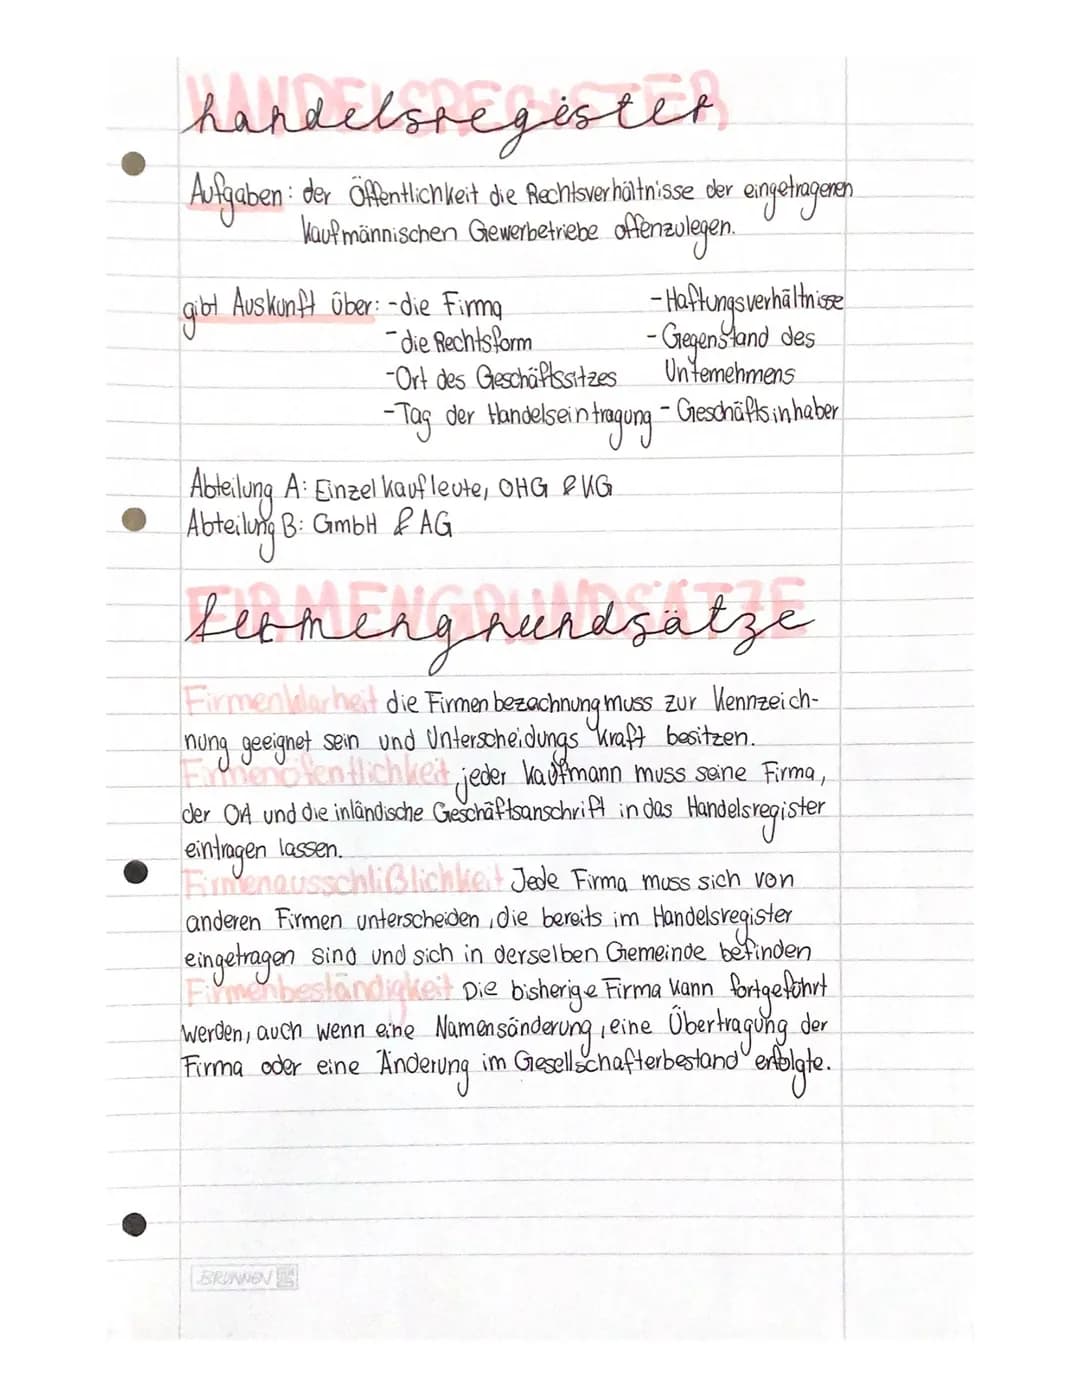 HANDELSREGISTER
handelsregister
Aufgaben: der Öffentlichkeit die Rechtsverhältnisse der eingetragenen
kaufmännischen Gewerbetriebe offenzulegen.
gibt Auskunft über: - die Firma
- die Rechtsform
- Ort des Geschäftssitzes
- Tag der Handelseintragung
- Haftungsverhältnisse
- Gegenstand des
Unternehmens
- Geschäftsinhaber
Abteilung A: Einzelkaufleute, OHG & KG
Abteilung B: GmbH & AG
FIRMENGRUNDSÄTZE
firmengrundsätze
Firmenklarheit die Firmenbezeichnung muss zur Kennzeich-
nung geeignet sein und Unterscheidungskraft besitzen.
Firmenöfentlichkeit jeder Kaufmann muss seine Firma,
der Ort und die inländische Geschäftsanschrift in das Handelsregister
eintragen lassen.
Firmenausschlißlichkeit Jede Firma muss sich von
anderen Firmen unterscheiden, die bereits im Handelsregister
eingetragen sind und sich in derselben Gemeinde befinden
Firmenbeständigkeit Die bisherige Firma kann fortgeführt
werden, auch wenn eine Namensänderung, eine Übertragung der
Firma oder eine Änderung im Gesellschafterbestand erfolgte.
BRUNNEN